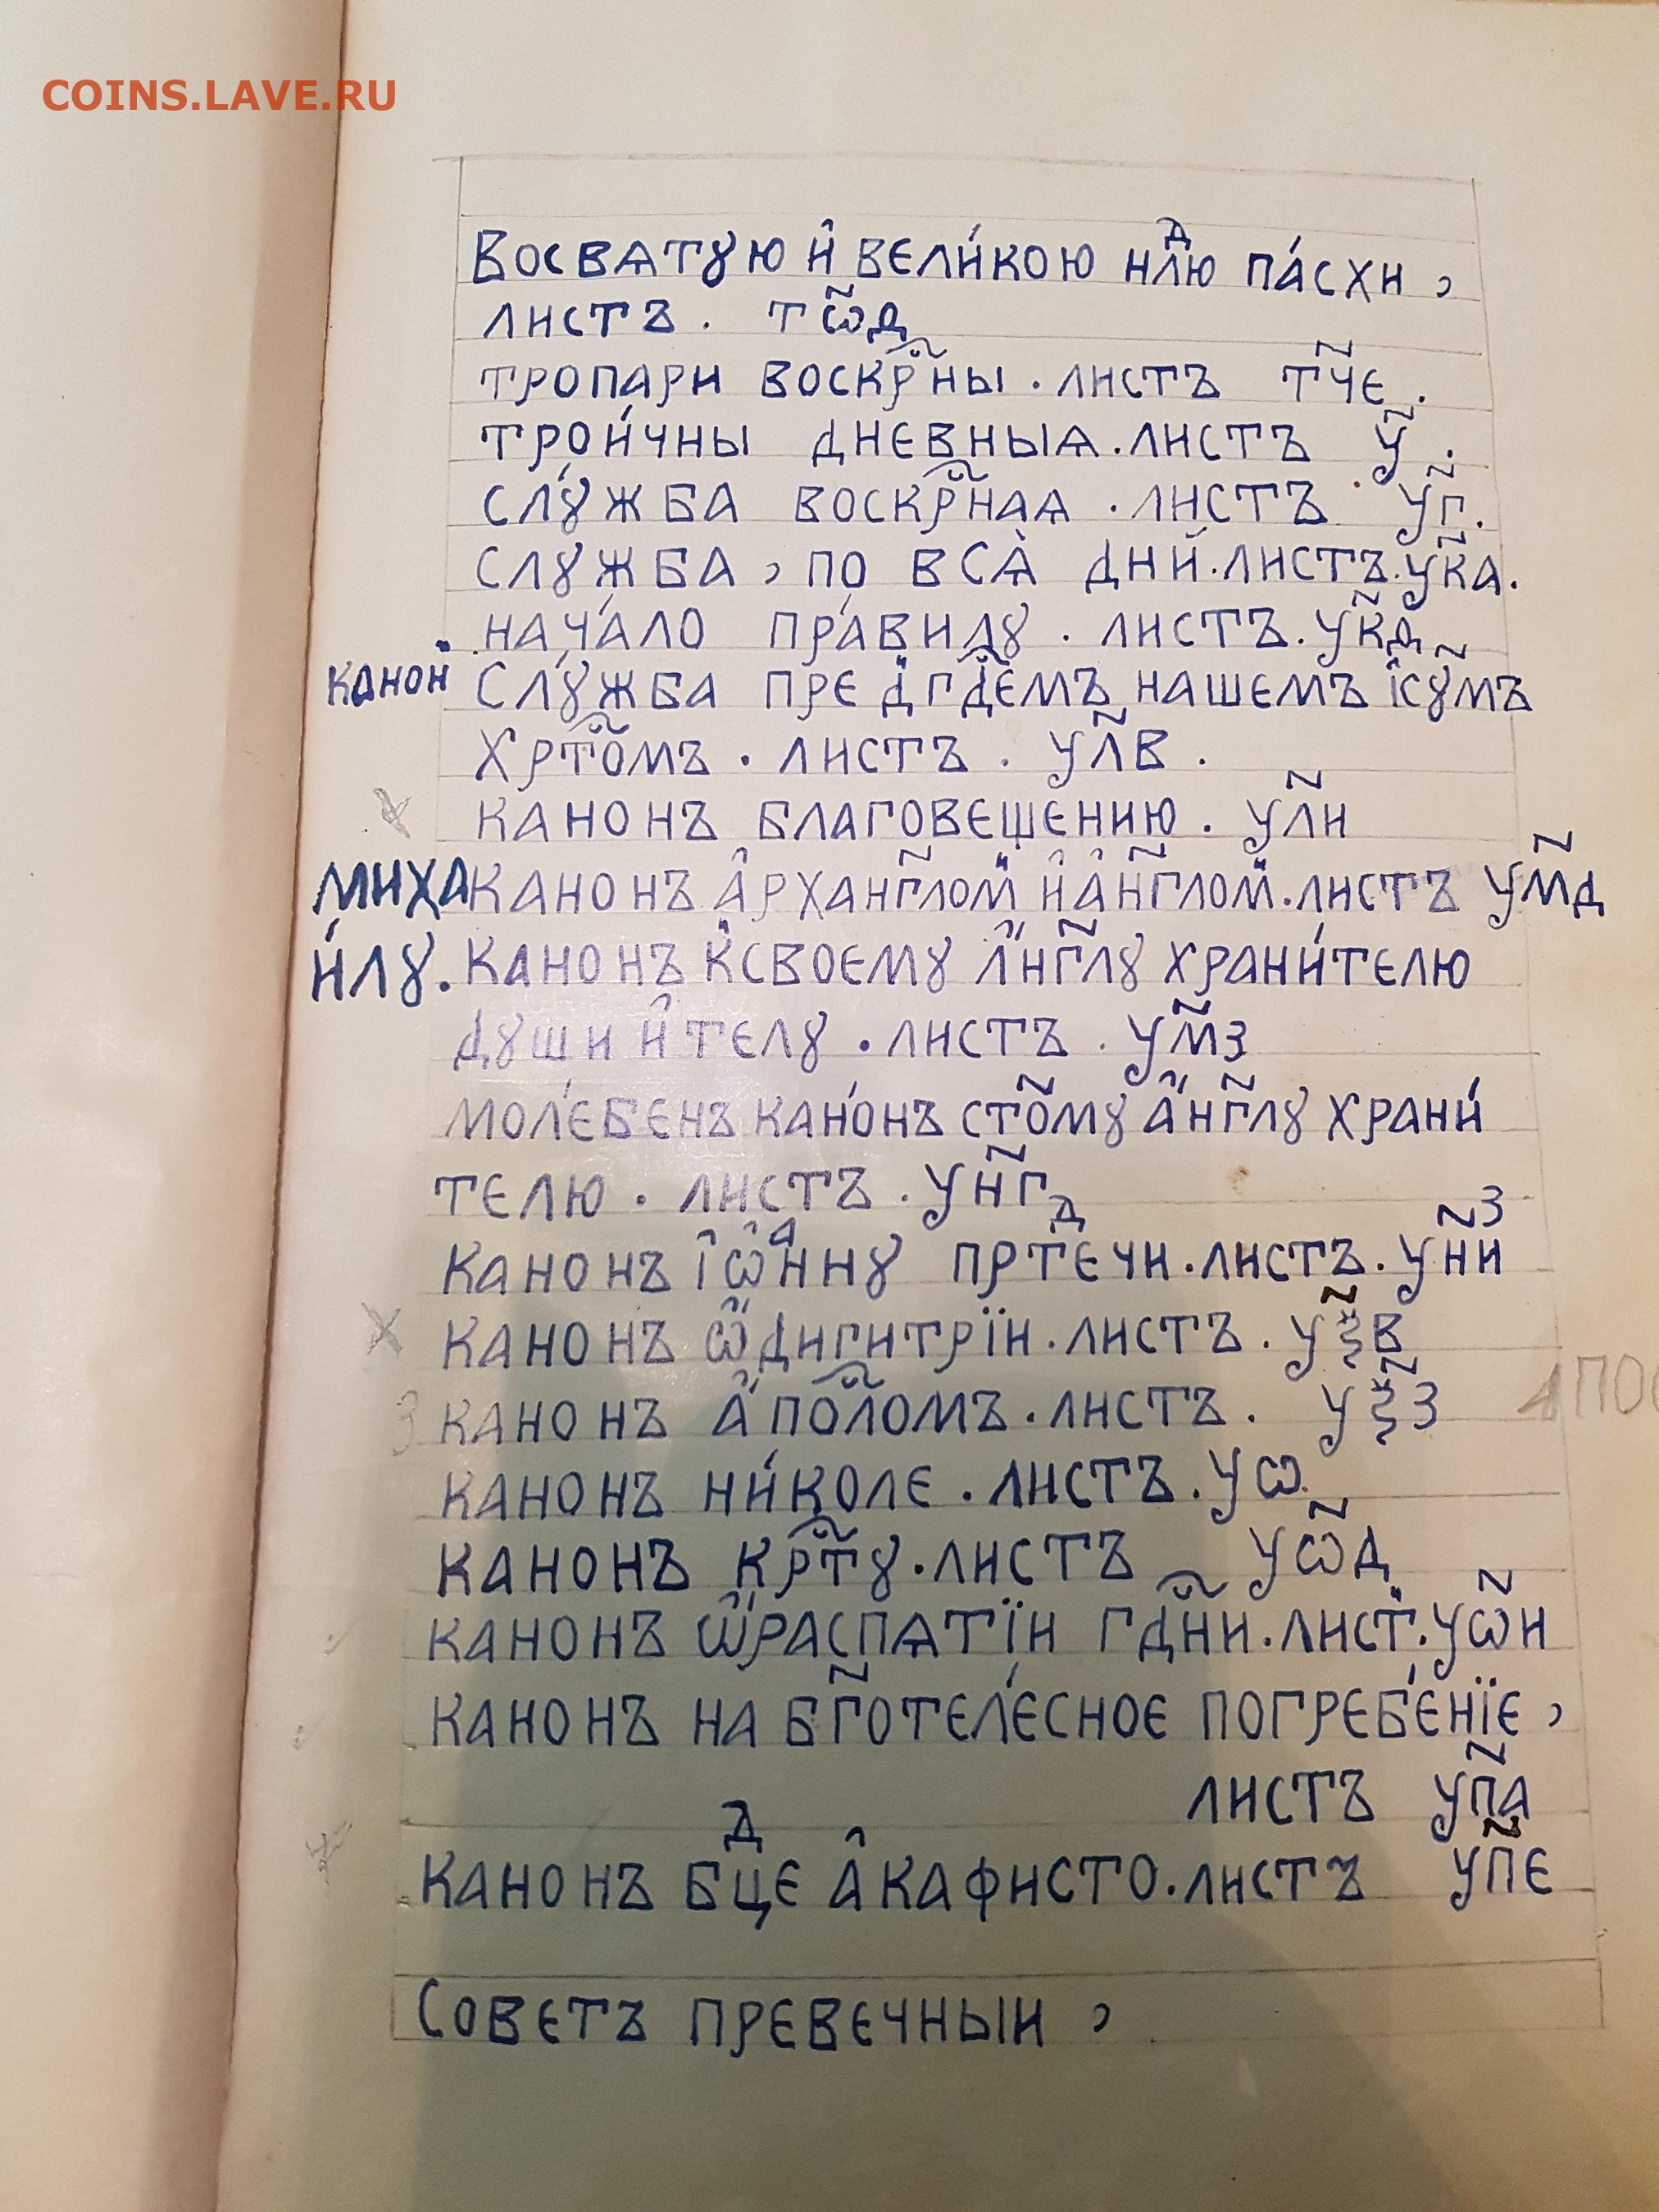 COINS.LAVE.RU
Восвѧтꙋю и̂ вели́кою нл҇дю па́схи ,
листъ . тѿ҃д
тропари воскр҇ны . листъ т҃че .
трои́чны дневныѧ . листъ у҃ .
слꙋ́жба воскр҇наѧ . листъ у҃г .
слꙋжба , по всѧ̀ днй . листъ . у҃ка .
нача́ло пра́вилꙋ . листъ . у҃кд
канон слꙋ́жба пред гд҇емъ нашемъ і̂с҃ꙋмъ
хрт҇омъ . листъ . у҃лв .
канонъ благовещению . у҃ли
миха канонъ а̂рхан҃глом и̂ а̂н҃глом . листъ у҃мд
и́лꙋ . канонъ ксвоемꙋ а҆́н҃глꙋ храни́телю
дꙋши и̂ телꙋ . листъ . у҃мз
моле́бенъ кано́нъ ст҃омꙋ а҆́н҃глꙋ храни́
телю . листъ . у҃нг
канонъ і̂ѡ̂аннꙋ прдтечи . листъ . у҃низ
канонъ ѡ҆́дигитрїи . листъ . у҃ѯв
канонъ а҆́пол҇омъ . листъ . у҃ѯз апо
канонъ ни́коле . листъ . уѡ
канонъ крт҇ꙋ . листъ уѡ҃д
канонъ ѡ҆́распѧтїи гд҇ни . лист . уѡ҃и
канонъ на б҃готеле́сное погребе́нїе ,
листъ у҃па
канонъ бдце а̂кафисто . листъ у҃пе
Советъ превечныи ,